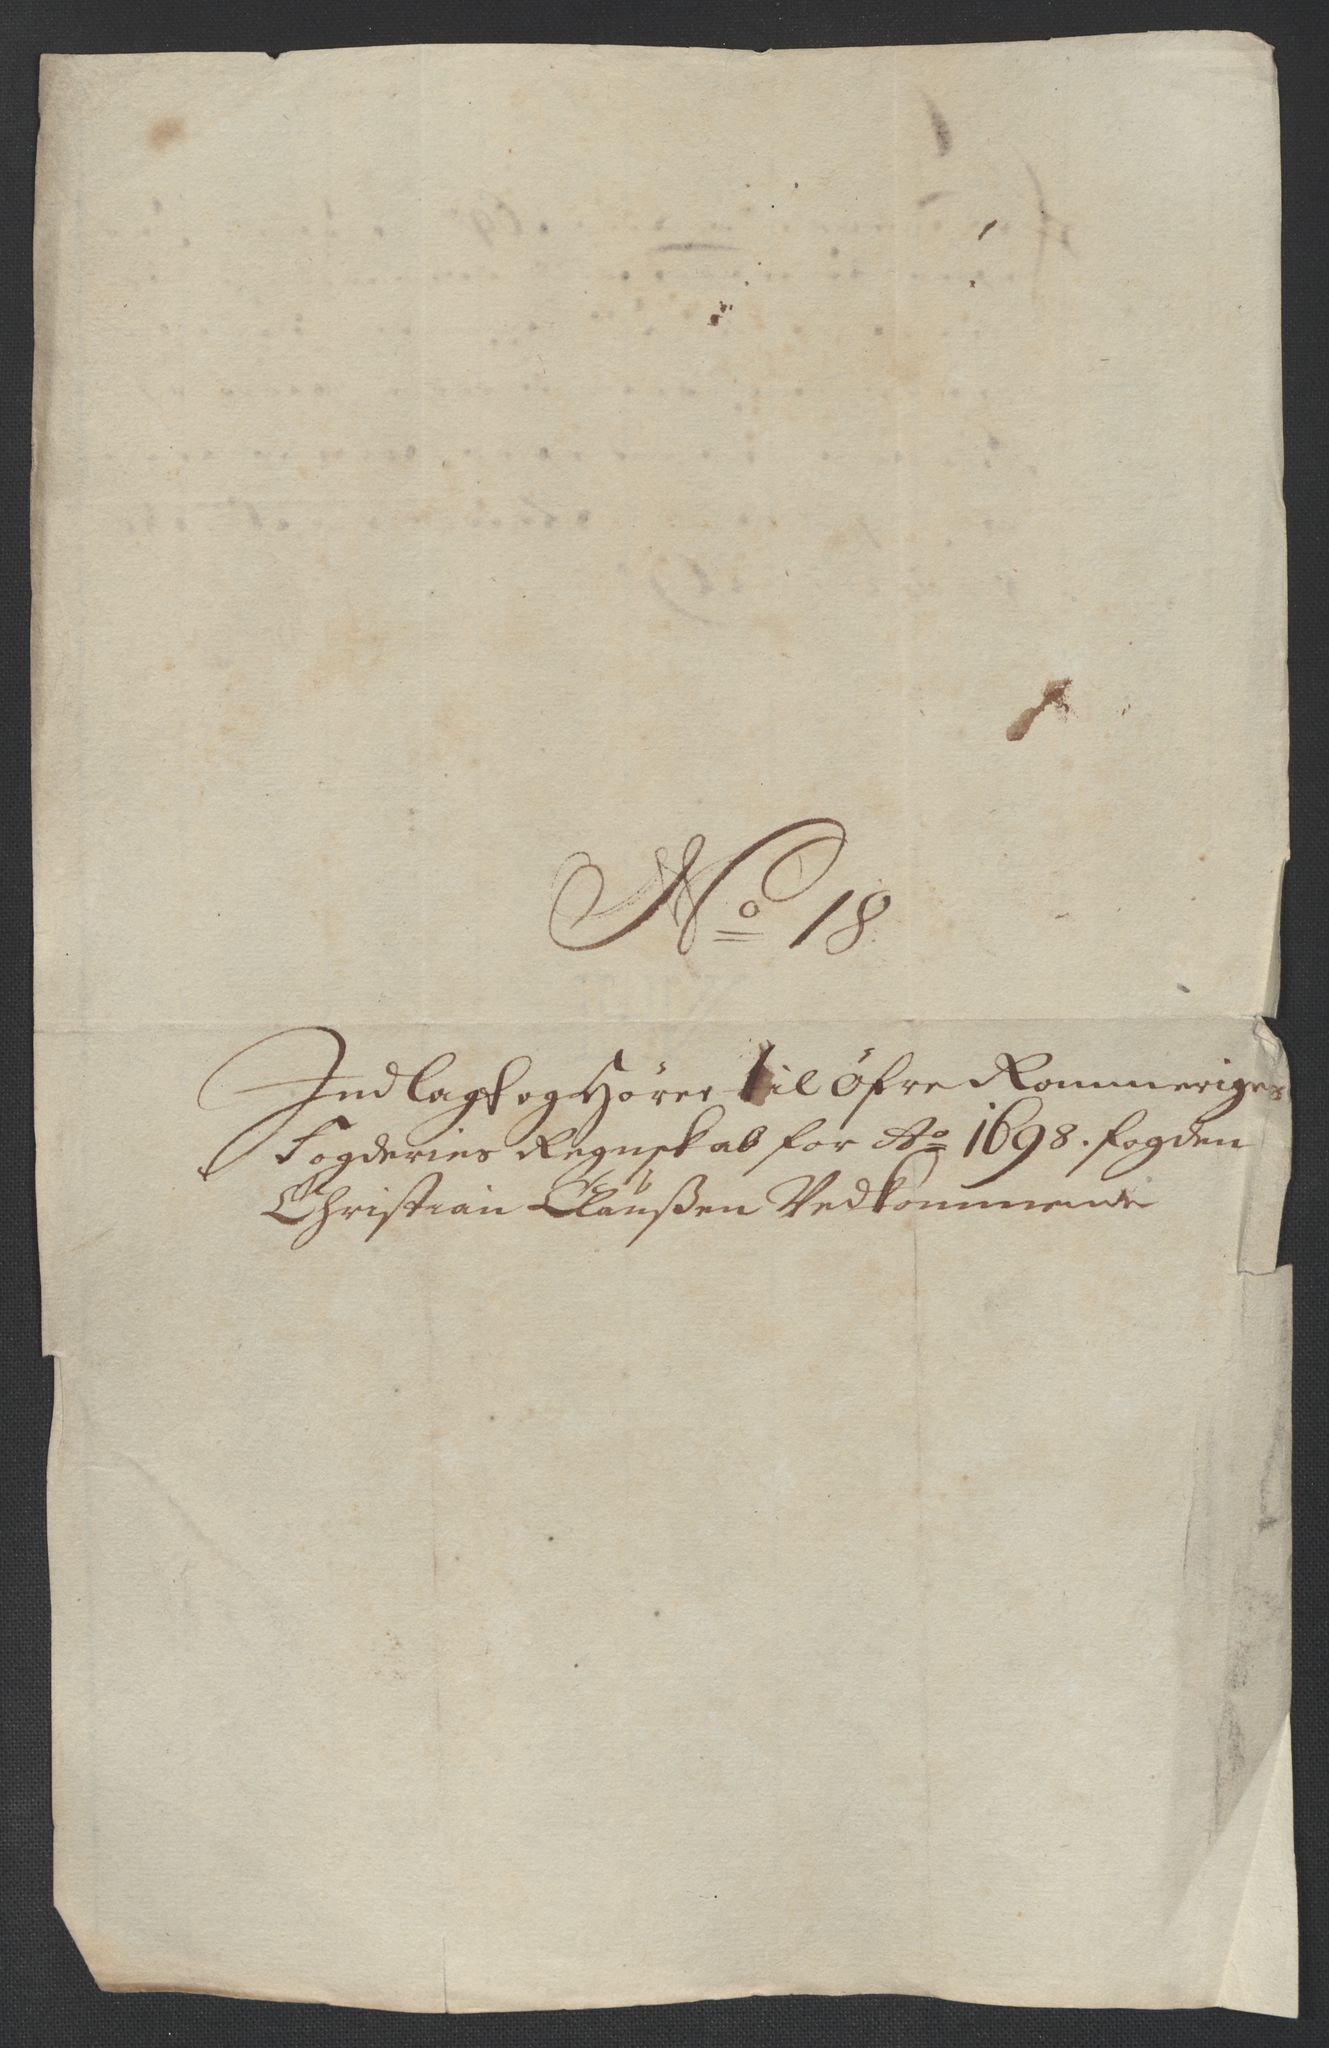 No 18
Indlagt og Hører til Øfre Rommeriges
Fogderies Regnskab for Ao 1698. fogden
Christian Claußen Vedkommende